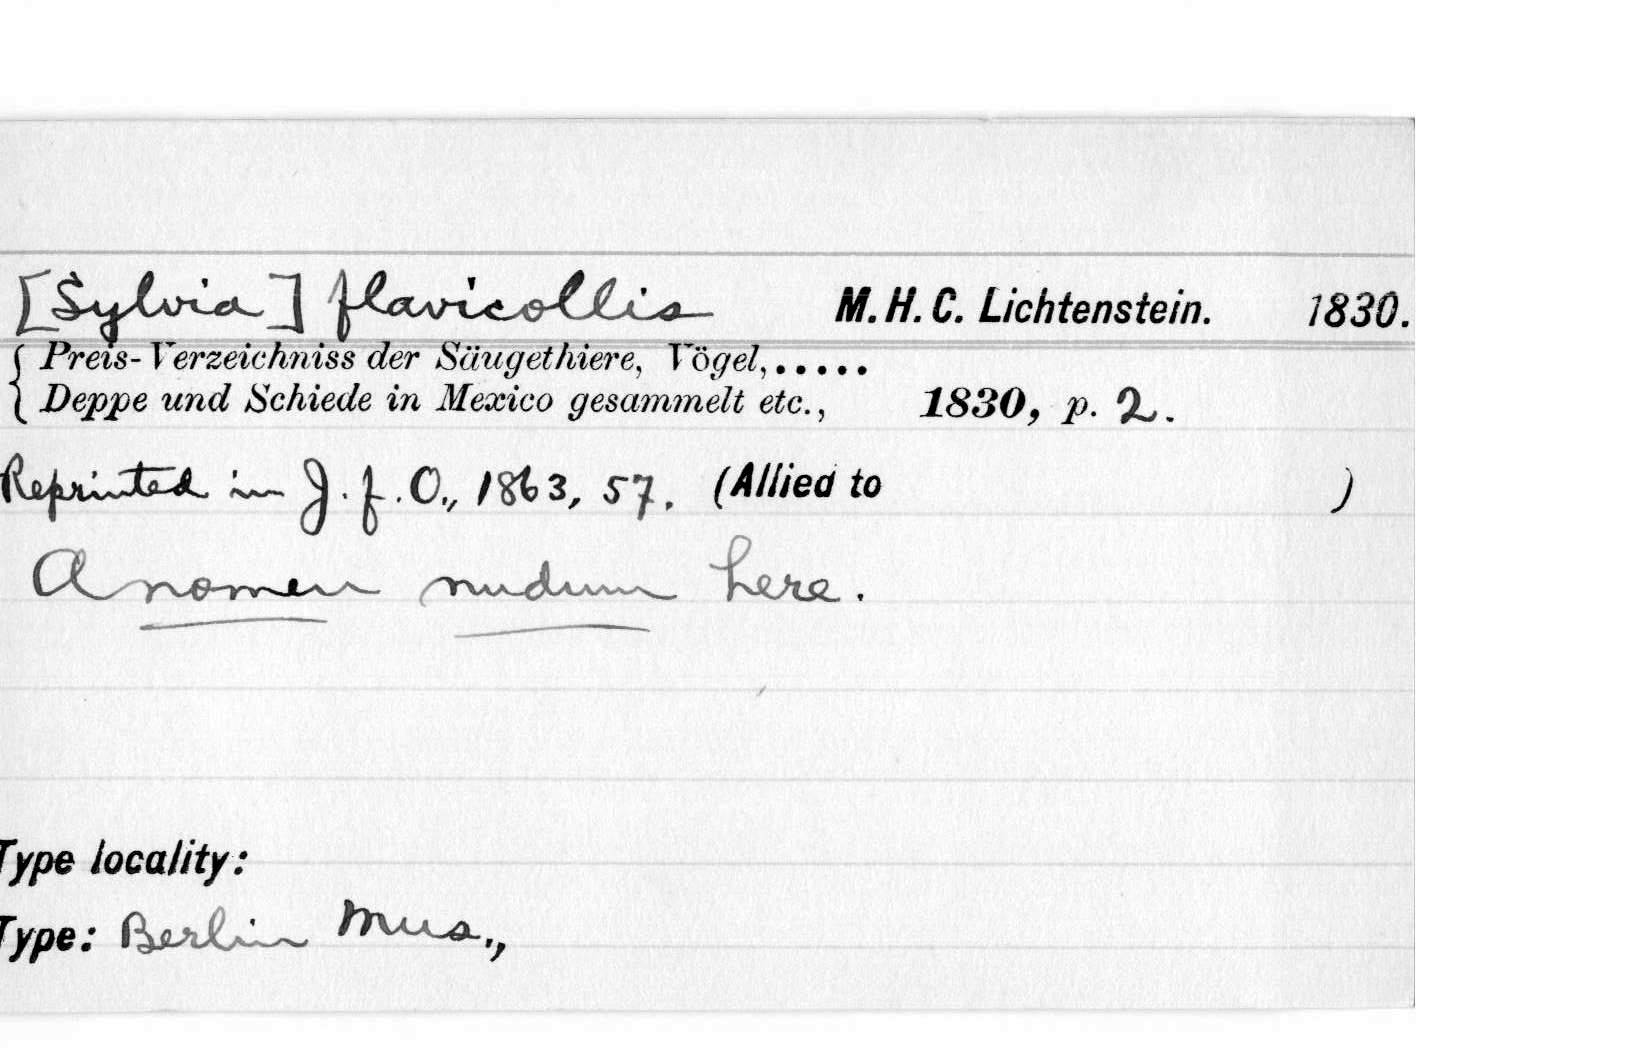 [Sylvia] flavicollis M. H. C. Lichtenstein. 1830.
{ Preis-Verzeichniss der Säugethiere, Vögel, .....
{ Deppe und Schiede in Mexico gesammelt etc., 1830, p. 2.
Reprinted in J. f. O., 1863, 57. (Allied to )
A nomen nudum here.
Type locality:
Type: Berlin Mus.,